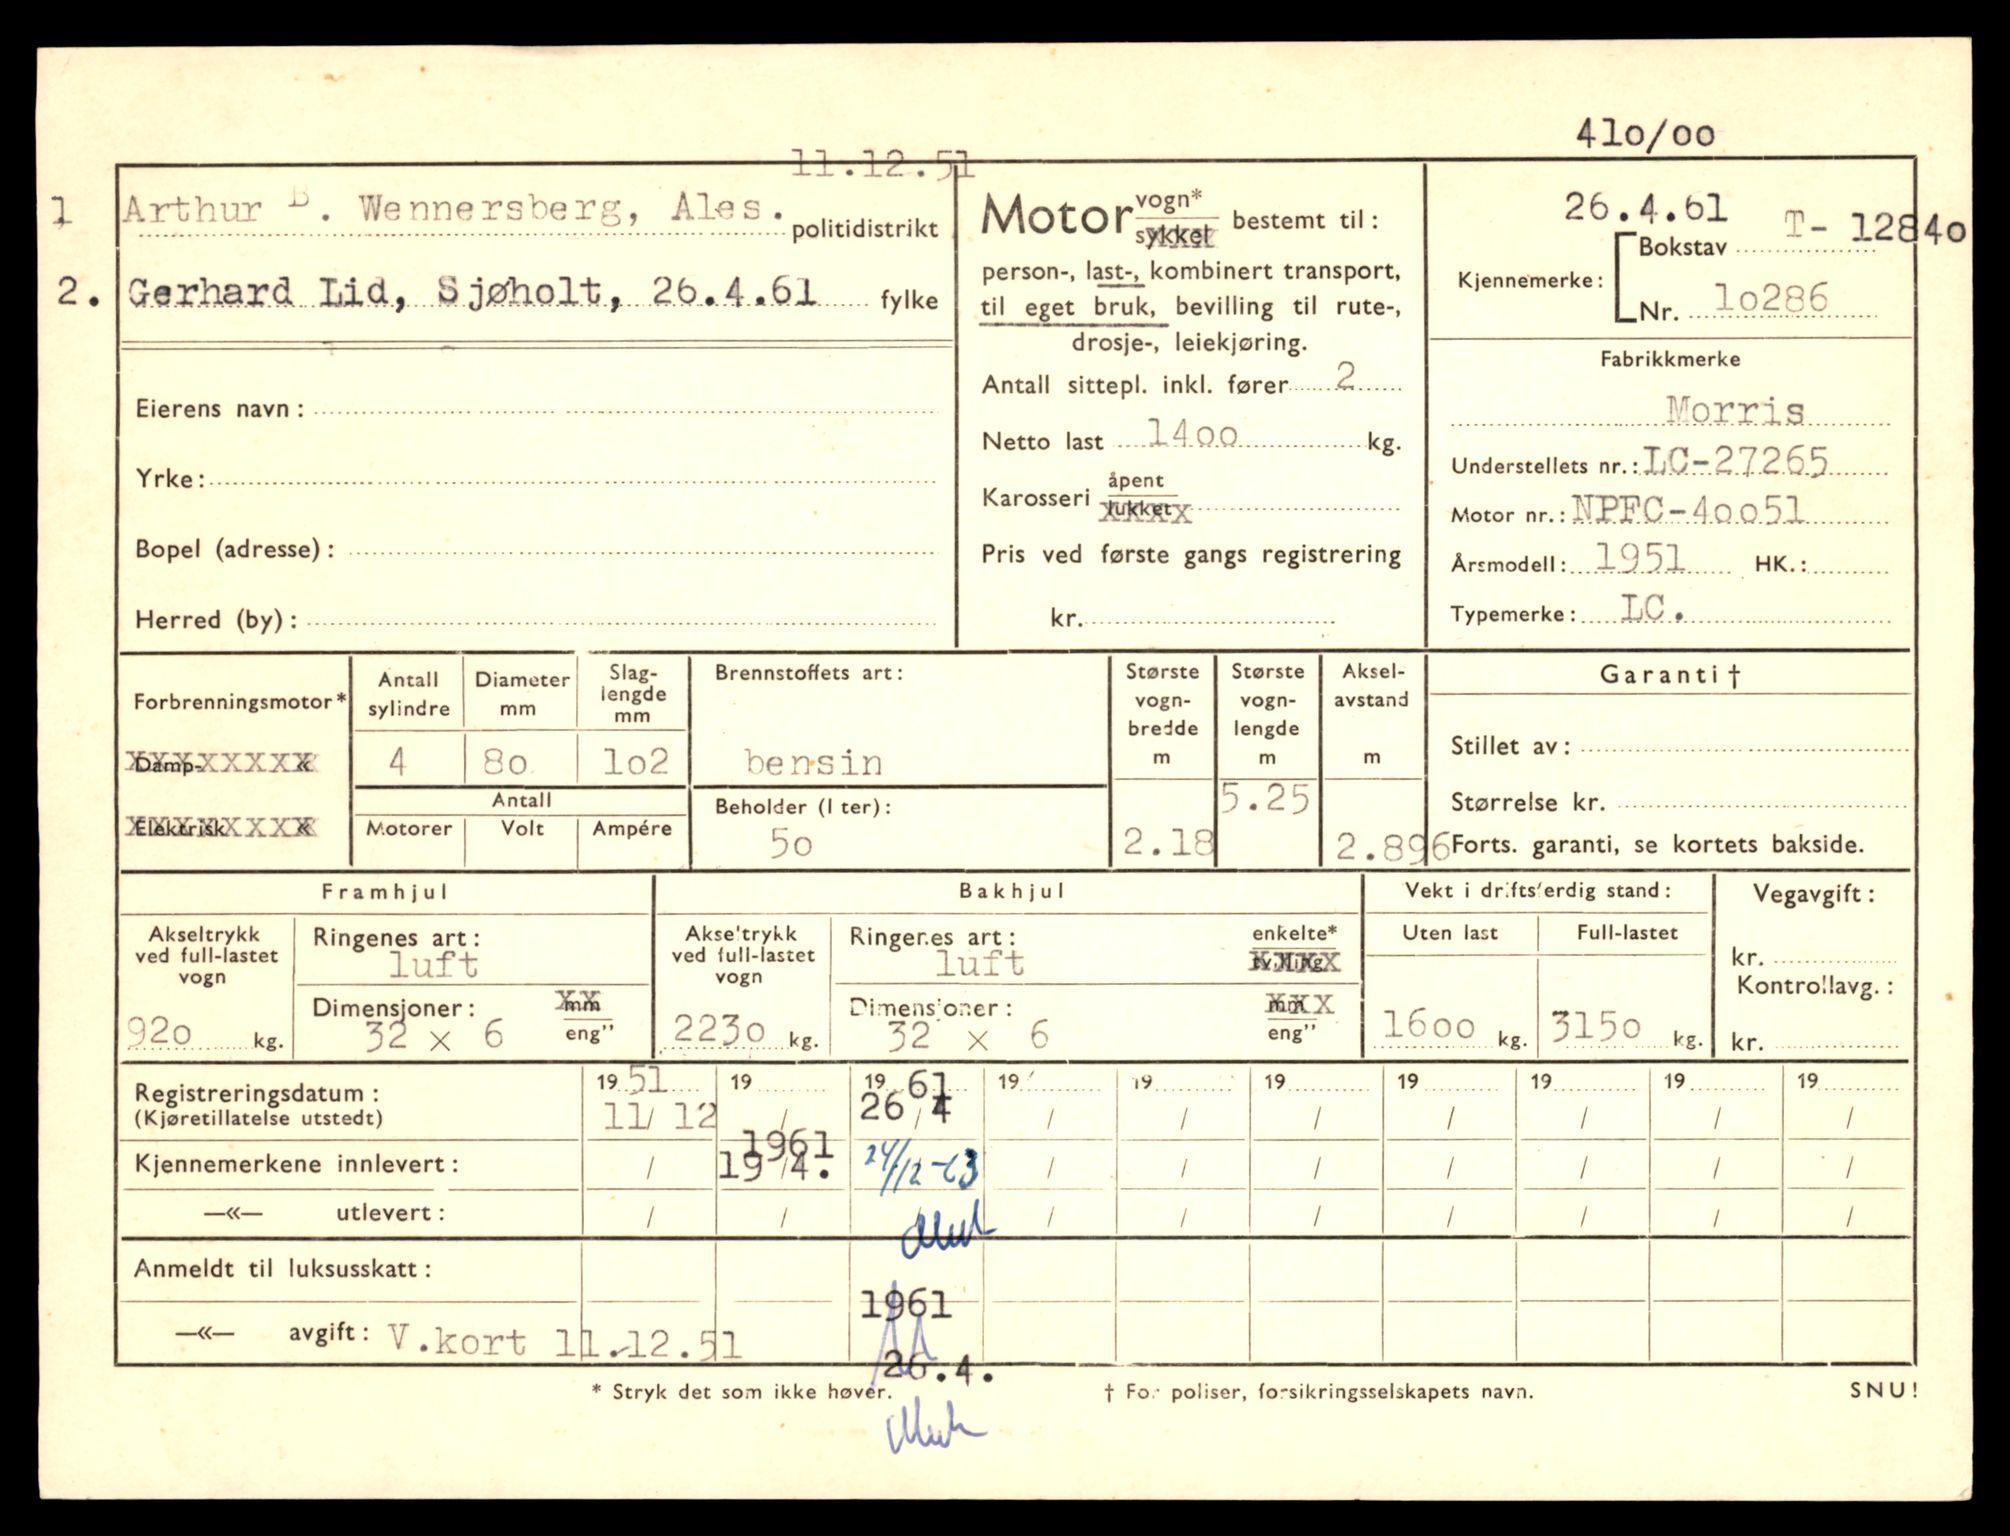 410/00
11.12.51
1 Arthur B. Wennersberg, Ales. politidistrikt
2. Gerhard Lid, Sjøholt, 26.4.61 fylke
Eierens navn:
Yrke:
Bopel (adresse):
Herred (by):
Motor vogn* sykkel bestemt til:
person-, last-, kombinert transport,
til eget bruk, bevilling til rute-,
drosje-, leiekjøring.
Antall sittepl. inkl. fører 2
Netto last 1400 kg.
Karosseri åpent lukket
Pris ved første gangs registrering
kr.
26.4.61 T- 12840
Kjennemerke: Bokstav
Nr. 10286
Fabrikkmerke
Morris
Understellets nr.: LC-27265
Motor nr.: NPFC-40051
Årsmodell: 1951 HK.:
Typemerke: LC.
Forbrenningsmotor*
Damp- «
Elektrisk «
Antall sylindre
4
Diameter mm
80
Slag-lengde mm
102
Antall
Motorer Volt Ampére
Brennstoffets art:
bensin
Beholder (l ter):
50
Største vogn-bredde m
2.18
Største vogn-lengde m
5.25
Aksel-avstand m
2.896
Garanti †
Stillet av:
Størrelse kr.
Forts. garanti, se kortets bakside.
Framhjul
Akseltrykk ved full-lastet vogn
920 kg.
Ringenes art:
luft
Dimensjoner: mm eng"
32 x 6
Bakhjul
Akseltrykk ved full-lastet vogn
2230 kg.
Ringenes art: enkelte* tvilling
luft
Dimensjoner: mm eng"
32 x 6
Vekt i driftsferdig stand:
Uten last Full-lastet
1600 kg. 3150 kg.
Vegavgift:
kr.
Kontrollavg.:
kr.
Registreringsdatum: 19 51 19 19 61 19 19 19 19 19 19 19
(Kjøretillatelse utstedt) 11/12 / 26/4 / / / / / / /
Kjennemerkene innlevert: / 1961 19/4. 24/12-63 / / / / / / /
—«— utlevert: / / / / / / / / / /
Anmeldt til luksusskatt:
1961
—«— avgift: V.kort 11.12.51
26.4.
* Stryk det som ikke høver. † For poliser, forsikringsselskapets navn. SNU!